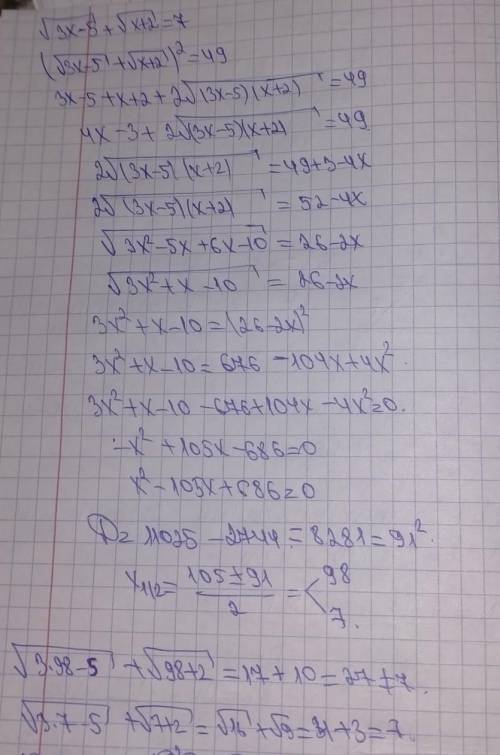 √3x-5 + √x+2 = 7
(√3x-5 + √x+2)² = 49
3x-5+x+2+2√(3x-5)(x+2) = 49
4x-3+2√(3x-5)(x+2) = 49
2√(3x-5)(x+2) = 49+3-4x
2√(3x-5)(x+2) = 52-4x
√3x²-5x+6x-10 = 26-2x
√3x²+x-10 = 26-2x
3x²+x-10 = (26-2x)²
3x²+x-10 = 676-104x+4x²
3x²+x-10-676+104x-4x²=0.
-x²+105x-686=0
x²-105x+686=0
D= 11025-2744=8281=91².
x1/2= 105±91/2 = < 98 7.
√3·98-5 + √98+2 = 17+10=27≠7.
√3·7-5 + √7+2 = √16+√9=4+3=7.